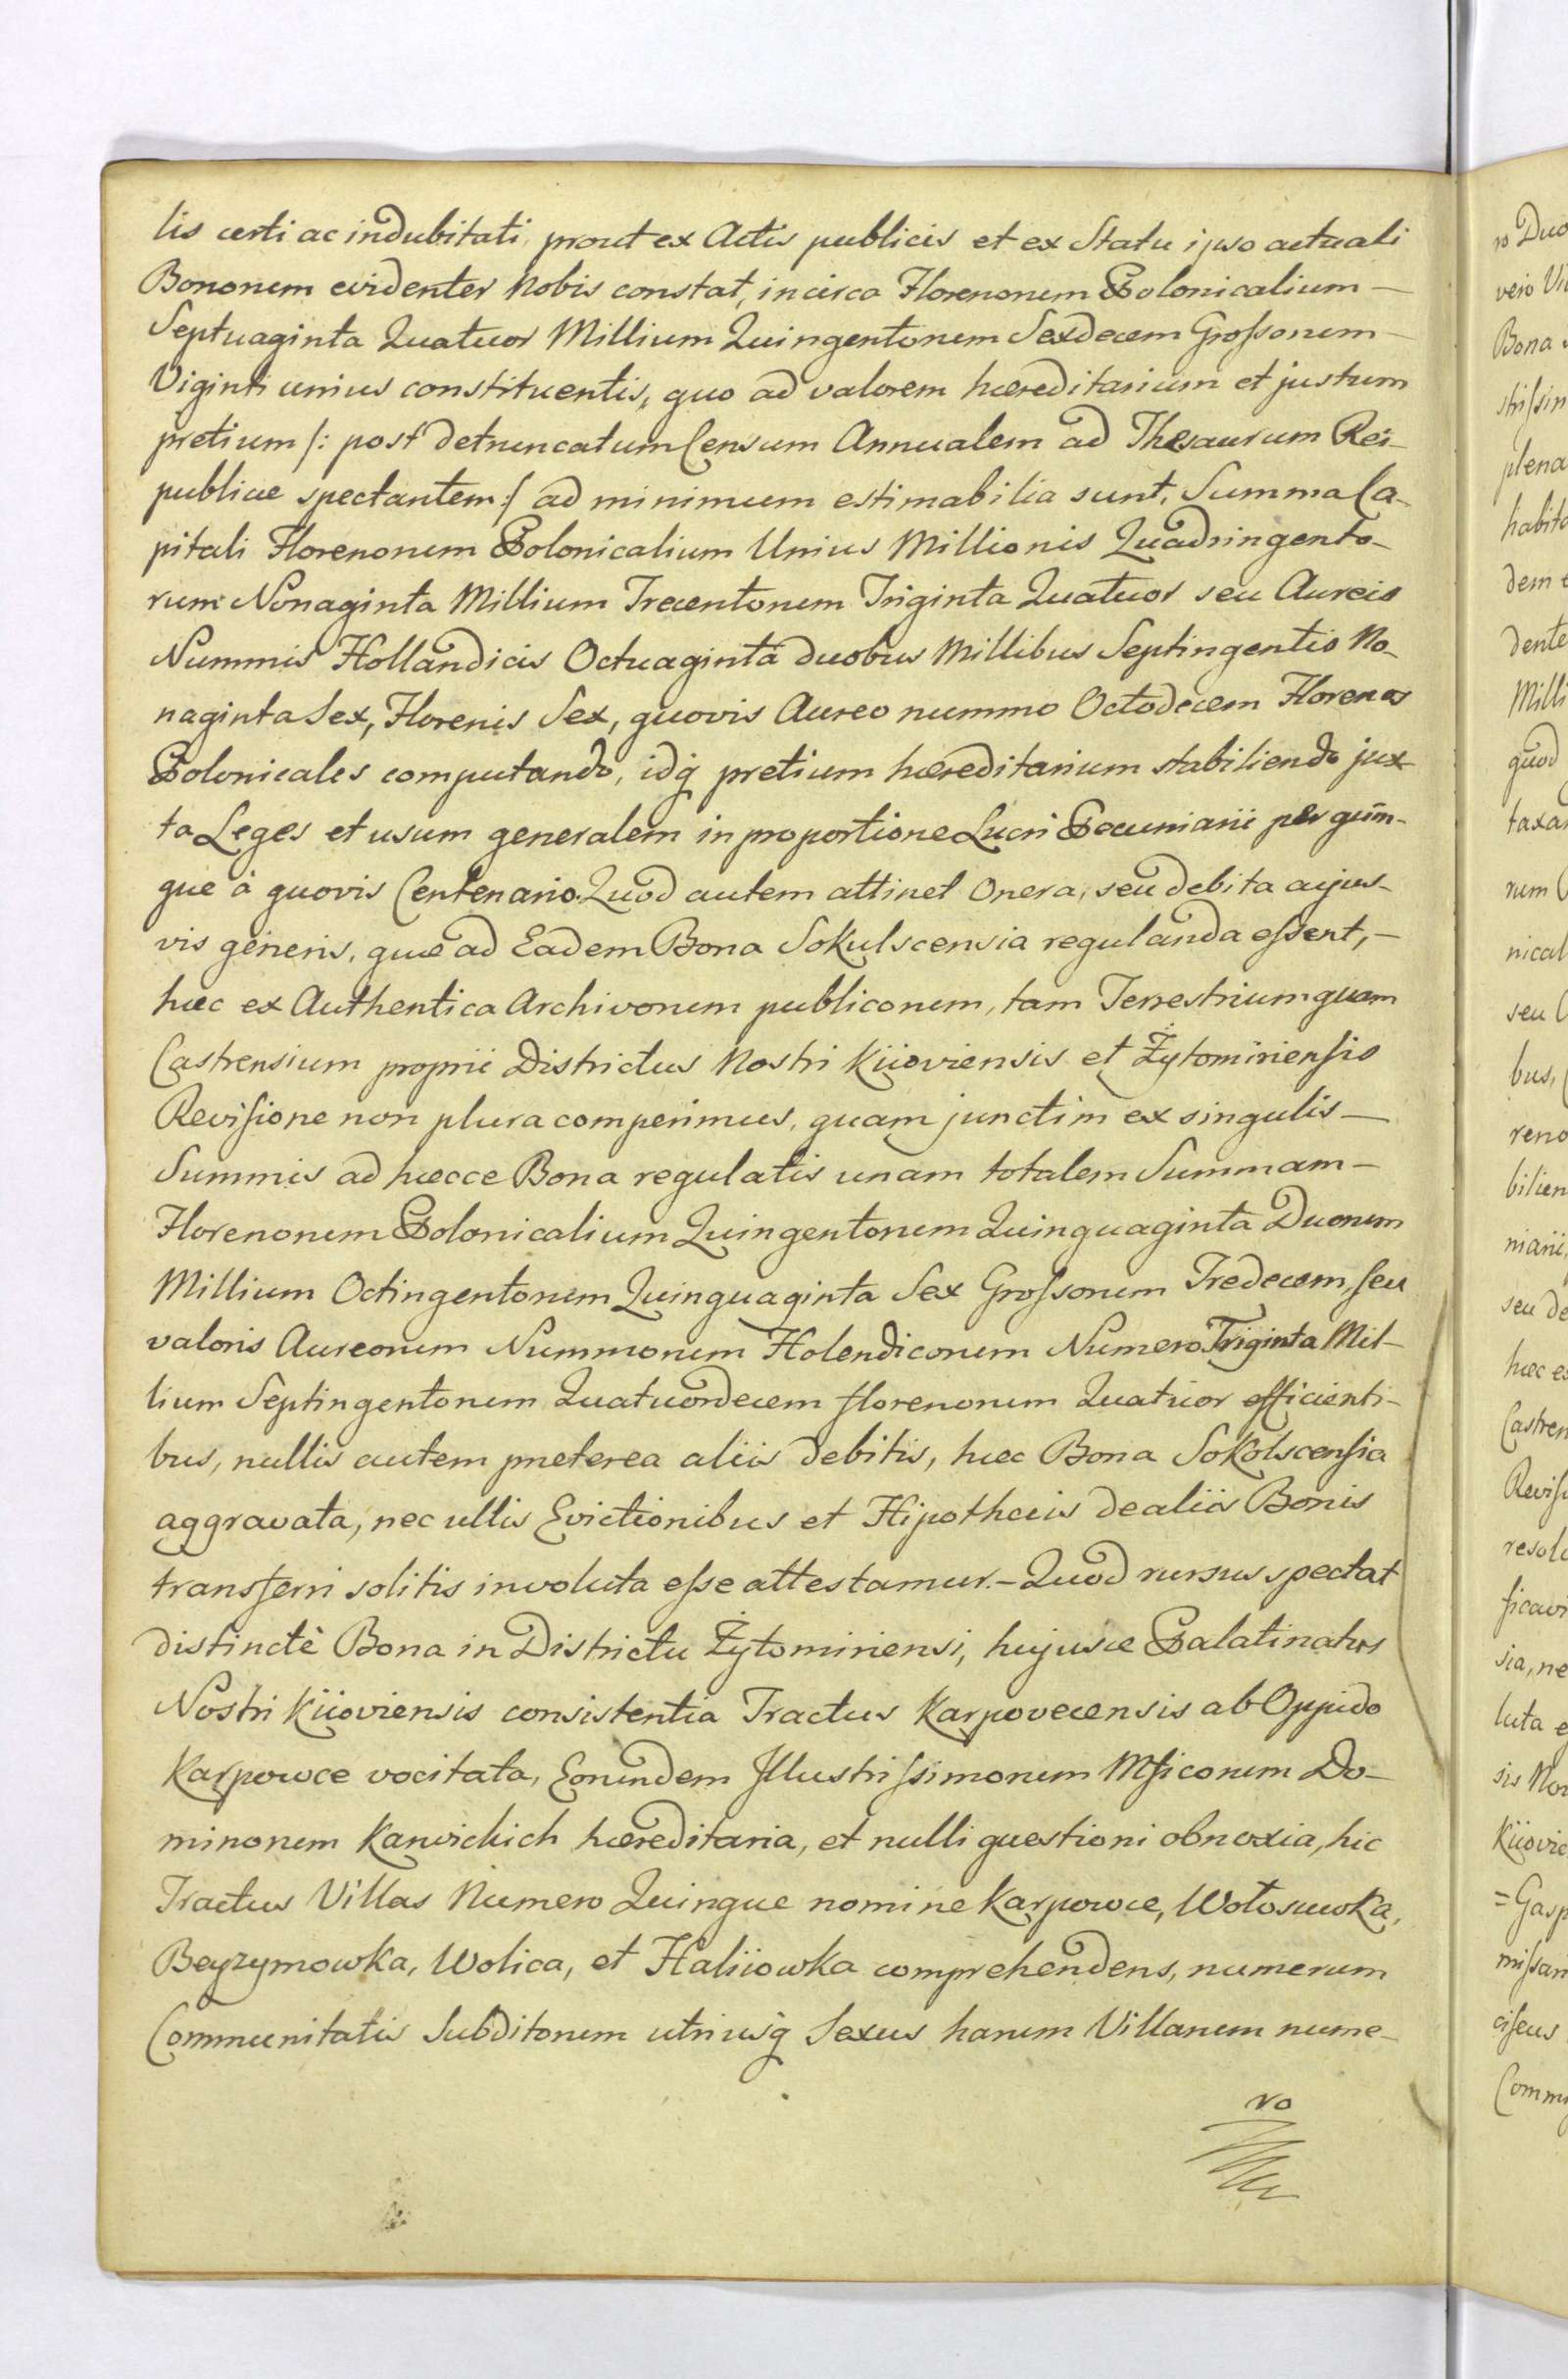 lis certi ac indubitati, prout ex Actis publicis et ex Statu ipso actuali
Bonorum evidenter Nobis constat, incirca Florenorum Polonicalium —
Septuaginta Quatuor Millium Quingentorum Sexdecem Grossorum —
Viginti unius constituentis, quo ad valorem hæreditarium et justum
pretium /: post detruncatum Censum Annualem ad Thesaurum Rei-
publicæ spectantem :/ ad minimum estimabilia sunt, Summa Ca-
pitali Florenorum Polonicalium Unius Millionis Quadringento-
rum Nonaginta Millium Trecentorum Triginta Quatuor seu Aureis
Nummis Hollandicis Octuaginta duobus Millibus Septingentis No-
naginta Sex, Florenis Sex, quovis Aureo nummo Octodecem Florenos
Polonicales computando, idq pretium hæreditarium stabiliendo jux-
ta Leges et usum generalem in proportione Lucri Pecuniarii per quin-
que à quovis Centenario. Quod autem attinet Onera, seu debita cujus-
vis generis, quæ ad Eadem Bona Sokulscensia regulanda essent, —
hæc ex Authentica Archivorum publicorum, tam Terrestrium quam
Castrensium proprii Districtus Nostri Kiioviensis et Żytomiriensis
Revisione non plura comperimus, quam junctim ex singulis —
Summis ad hæcce Bona regulatis unam totalem Summam —
Florenorum Polonicalium Quingentorum Quinquaginta Duorum
Millium Octingentorum Quinquaginta Sex Grossorum Tredecem seu
valoris Aureorum Nummorum Holendicorum Numero Triginta Mil-
lium Septingentorum Quatuordecem florenorum Quatuor efficienti-
bus, nullis autem preterea aliis debitis, hæc Bona Sokolscensia
aggravata, nec ullis Evictionibus et Hipothecis de aliis Bonis
transferri solitis involuta esse attestamur. — Quod rursus spectat
distinctè Bona in Districtu Żytomiriensi, hujusce Palatinatus
Nostri Kiioviensis consistentia Tractus Karpovecensis ab Oppido
Karpowce vocitata, Eorundem Illustrissimorum Mficorum Do-
minorum Karwickich hæreditaria, et nulli questioni obnoxia, hic
Tractus Villas Numero Quinque nomine Karpowce, Wołosuwka,
Beyzymowka, Wolica, et Haliiowka comprehendens, numerum
Communitatis Subditorum utriusq Sexus harum Villarum nume-
ro
ro Duo
vero Vi
Bona
strissim
plena
habita
dem e
dente
Milli
quod
taxa
rum
nical
seu
bus,
reno
bilien
niarii,
seu de
hæc e
Castren
Revis
resol
ficavi
sia, ne
luta e
sis No
Kiiovie
=Gasp
missari
ciscus
Comm